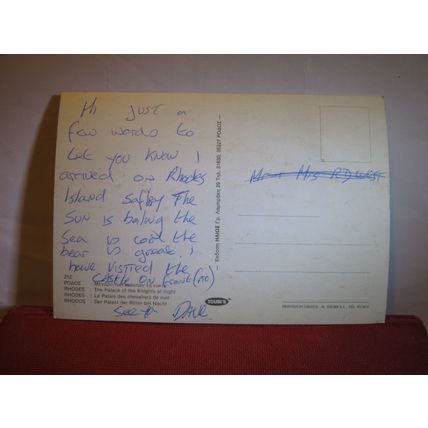 Hi JUST a
few words to
Let you know I
arrived on Rhodes
Island safley The
SUN is baking the
Sea is cool the
bear is greate. I
have visited the
Castle on Front (PTO)
See ya DAVE
212
ΡΟΔΟΣ
RHODES - The Palace of the Knights at night
RHODES - Le Palais des chevaliers de nuit
RHODOS - Der Palast der Ritter bei Nacht
Εκδοση ΗΛΙΟΣ
ΡΟΔΟΣ
TOUBI'S
Mr + Mrs P.D. WEST
PRINTED IN GREECE